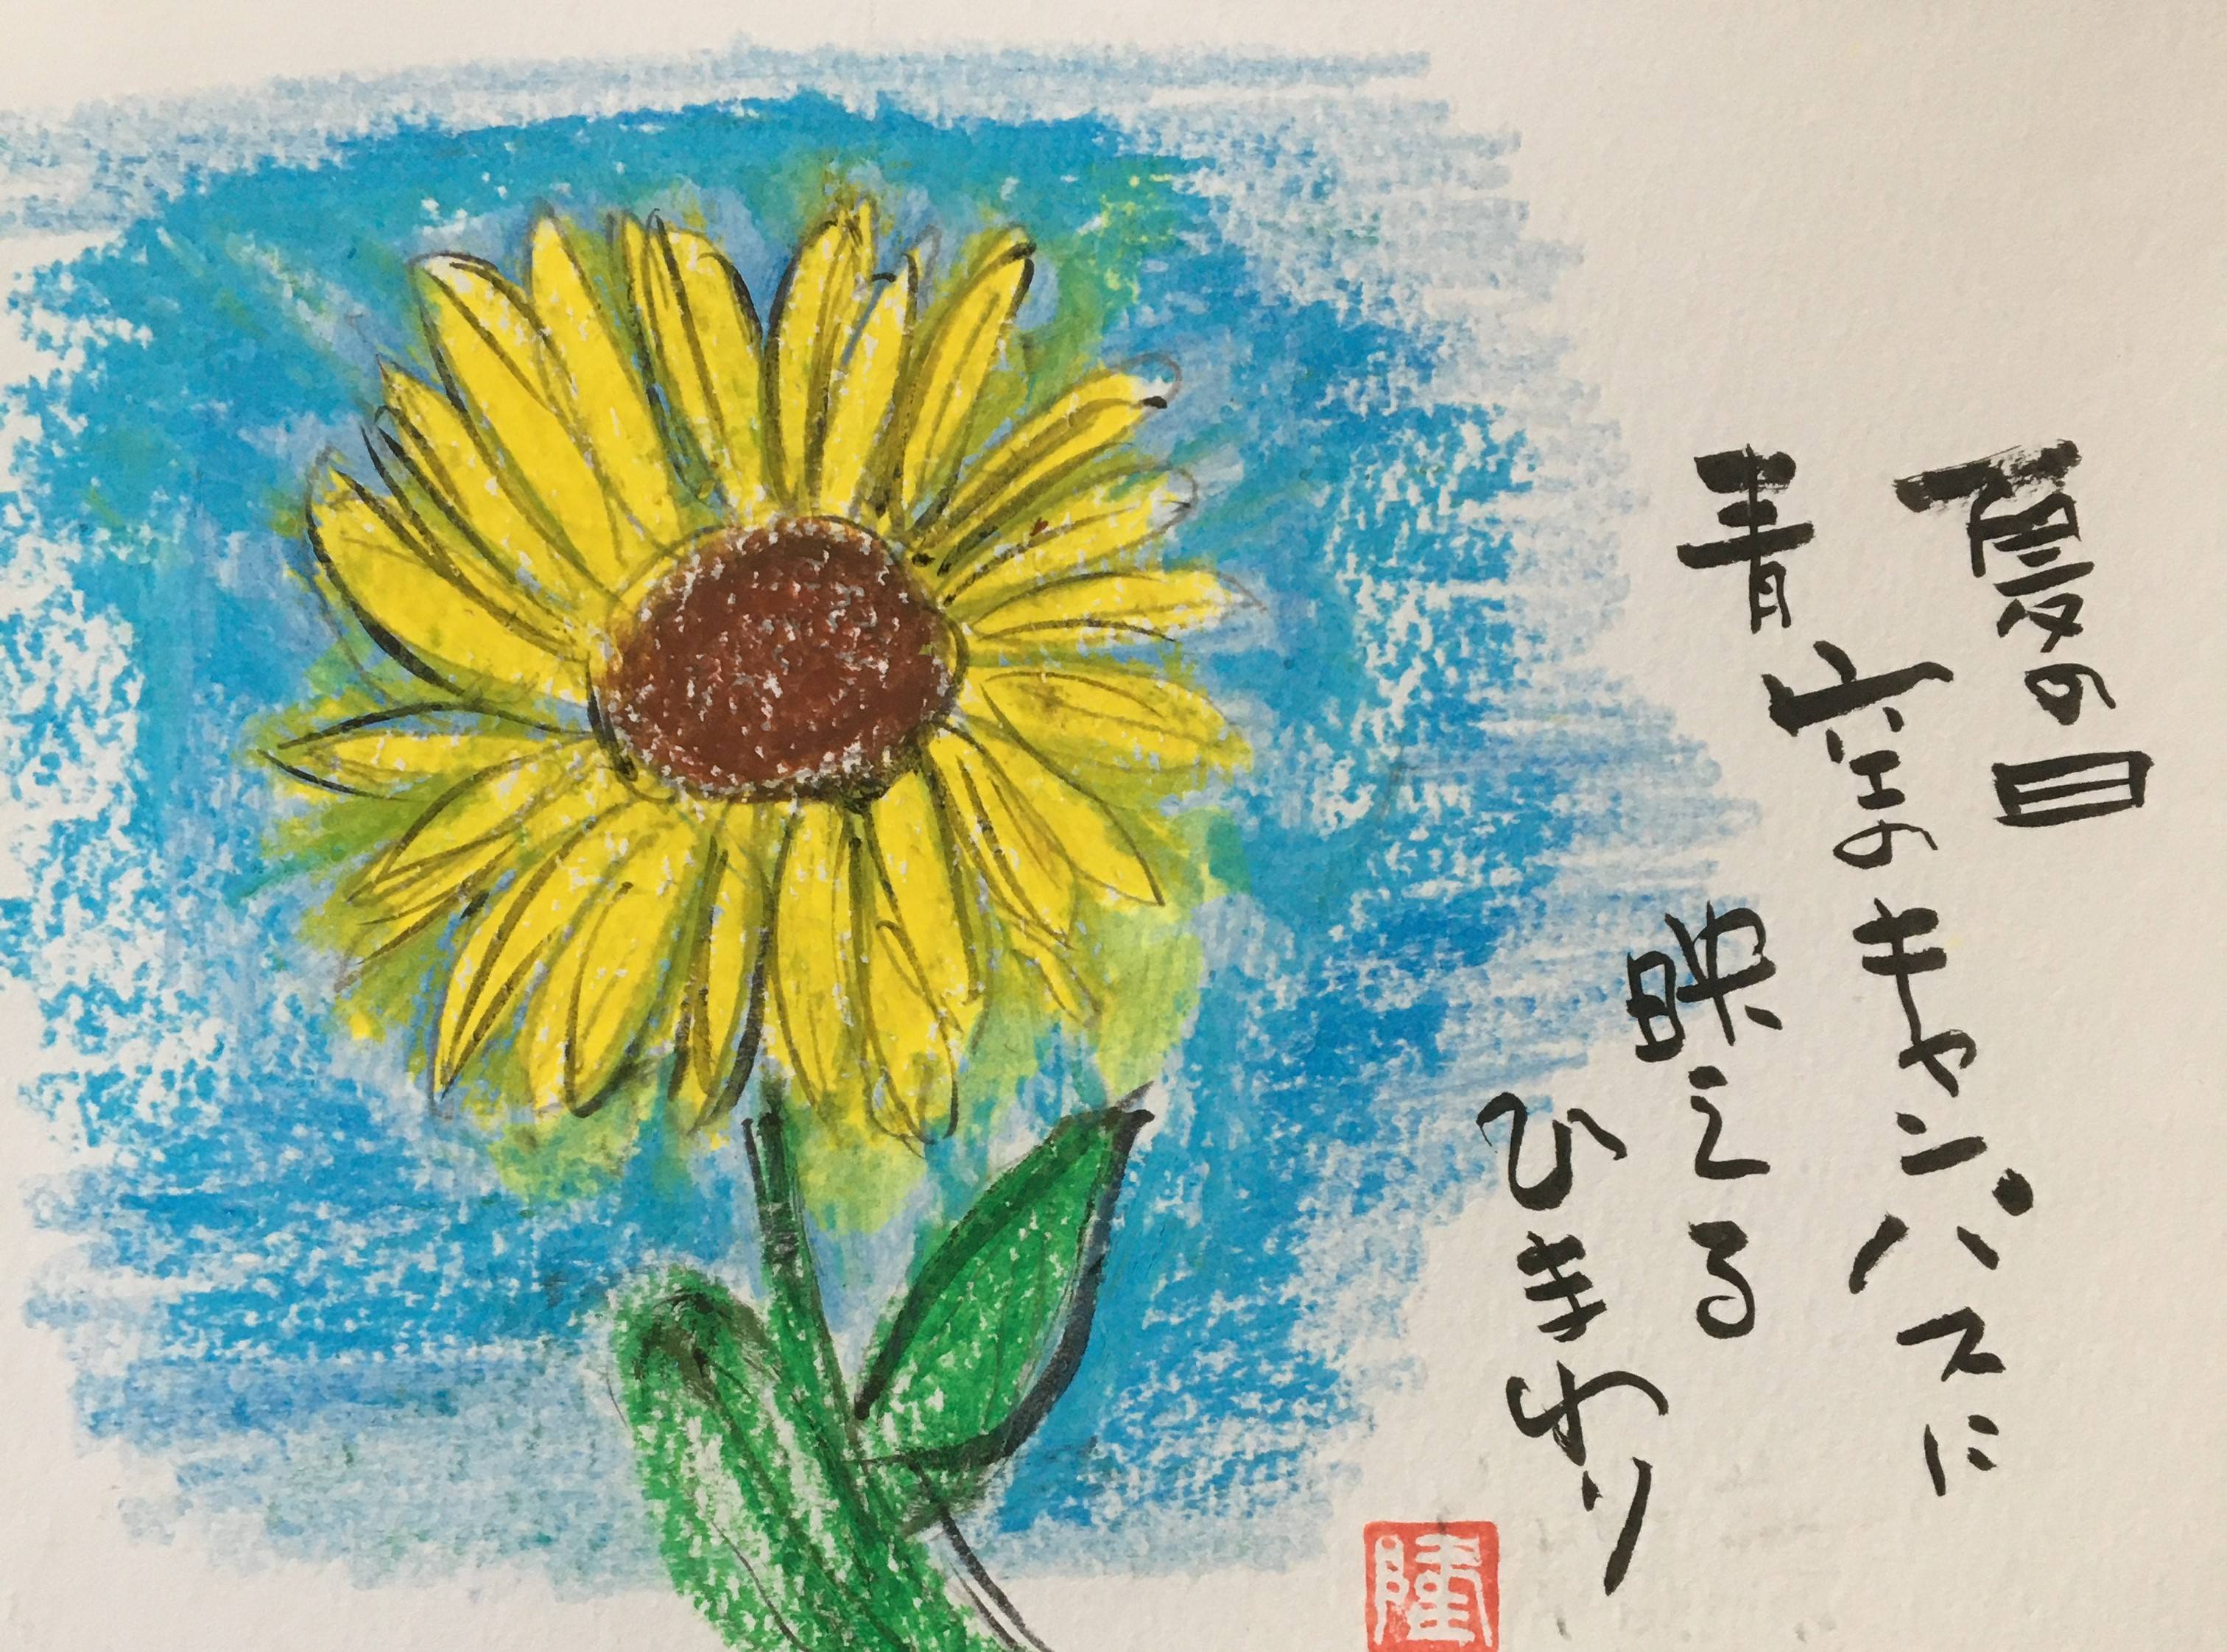 夏の日
青空のキャンバスに
映える
ひまわり